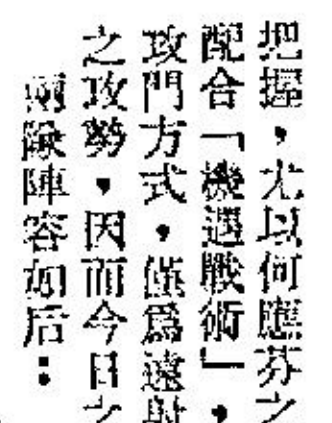 把握，尤以何應芬之
配合「機遇戰術」，
攻門方式，僅爲遠射
之攻勢，因而今日之
兩隊陣容如后：